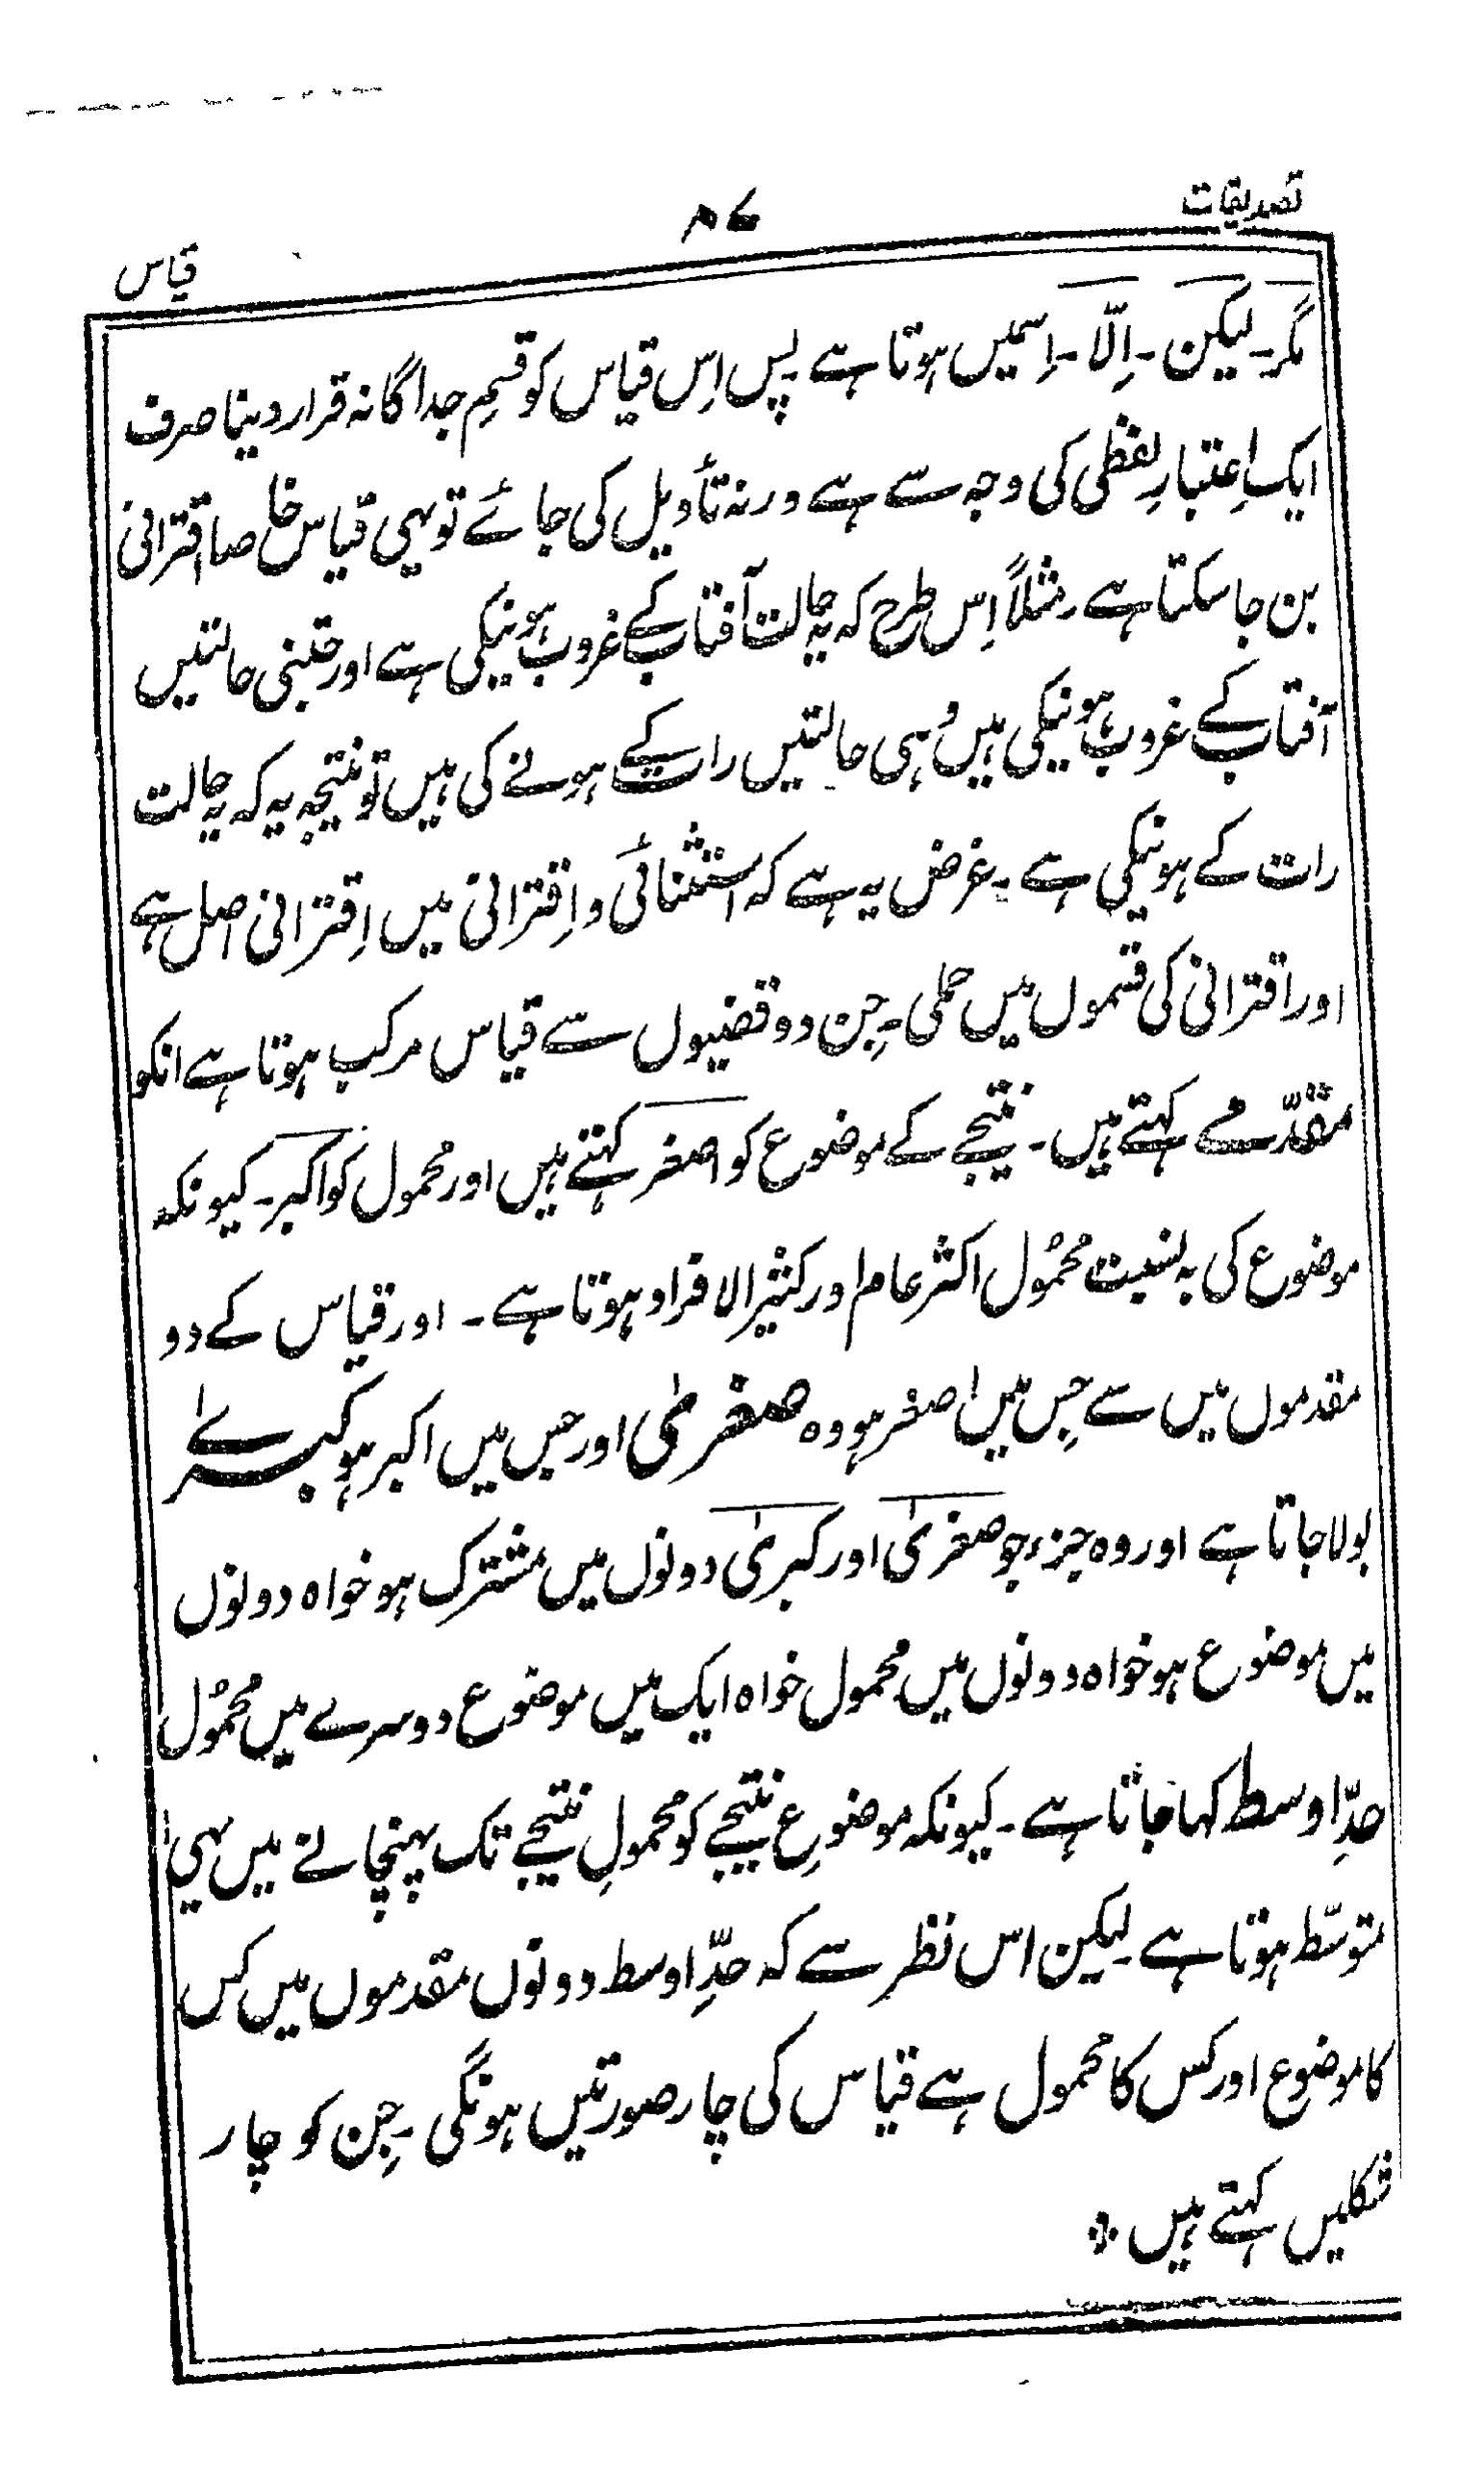 تصدیقات
۸۷
قیاس
مگر۔ لیکن۔ اِلّا۔ اِسمیں ہوتا ہے۔ پس اِس قیاس کو قسمِ جداگانہ قرار دینا صرف
ایک اِعتبارِ لفظی کی وجہ سے ہے ورنہ تأویل کی جائے تو یہی قیاس خاصا اقترانی
بن جا سکتا ہے۔ مثلاً اِس طرح کہ یہ حالت آفتاب کے غروب ہونیکی ہے اور جتنی حالتیں
آفتاب کے غروب ہونیکی ہیں وُہی حالتیں رات کے ہونے کی ہیں تو نتیجہ یہ کہ یہ حالت
رات کے ہونیکی ہے۔ غرض یہ ہے کہ استثنائی و اِقترانی میں اِقترانی اصل ہے
اور اقترانی کی قسموں میں حملی۔ جِن دو قضیوں سے قیاس مرکب ہوتا ہے انکو
مقدّمے کہتے ہیں۔ نتیجے کے موضوع کو اصغر کہتے ہیں اور محمول کو اکبر۔ کیونکہ
موضوع کی بہ نسبت محمُول اکثر عام اور کثیر الافراد ہوتا ہے۔ اور قیاس کے دو
مقدموں میں سے جِس میں اصغر ہو وہ صغریٰ اور جس میں اکبر ہو کبرےٰ
بولا جاتا ہے اور وہ جزء جو صغریٰ اور کبریٰ دونوں میں مشترک ہو خواہ دونوں
میں موضوع ہو خواہ دونوں میں محمول خواہ ایک میں موضوع دوسرے میں محمُول
حدِّ اوسط کہا جاتا ہے۔ کیونکہ موضوعِ نتیجے کو محمولِ نتیجے تک پہنچانے میں یہی
متوسّط ہوتا ہے۔ لیکن اس نظر سے کہ حدِّ اوسط دونوں مقدموں میں کس
کا موضوع اور کس کا محمول ہے قیاس کی چار صورتیں ہونگی۔ جِن کو چار
شکلیں کہتے ہیں ۞